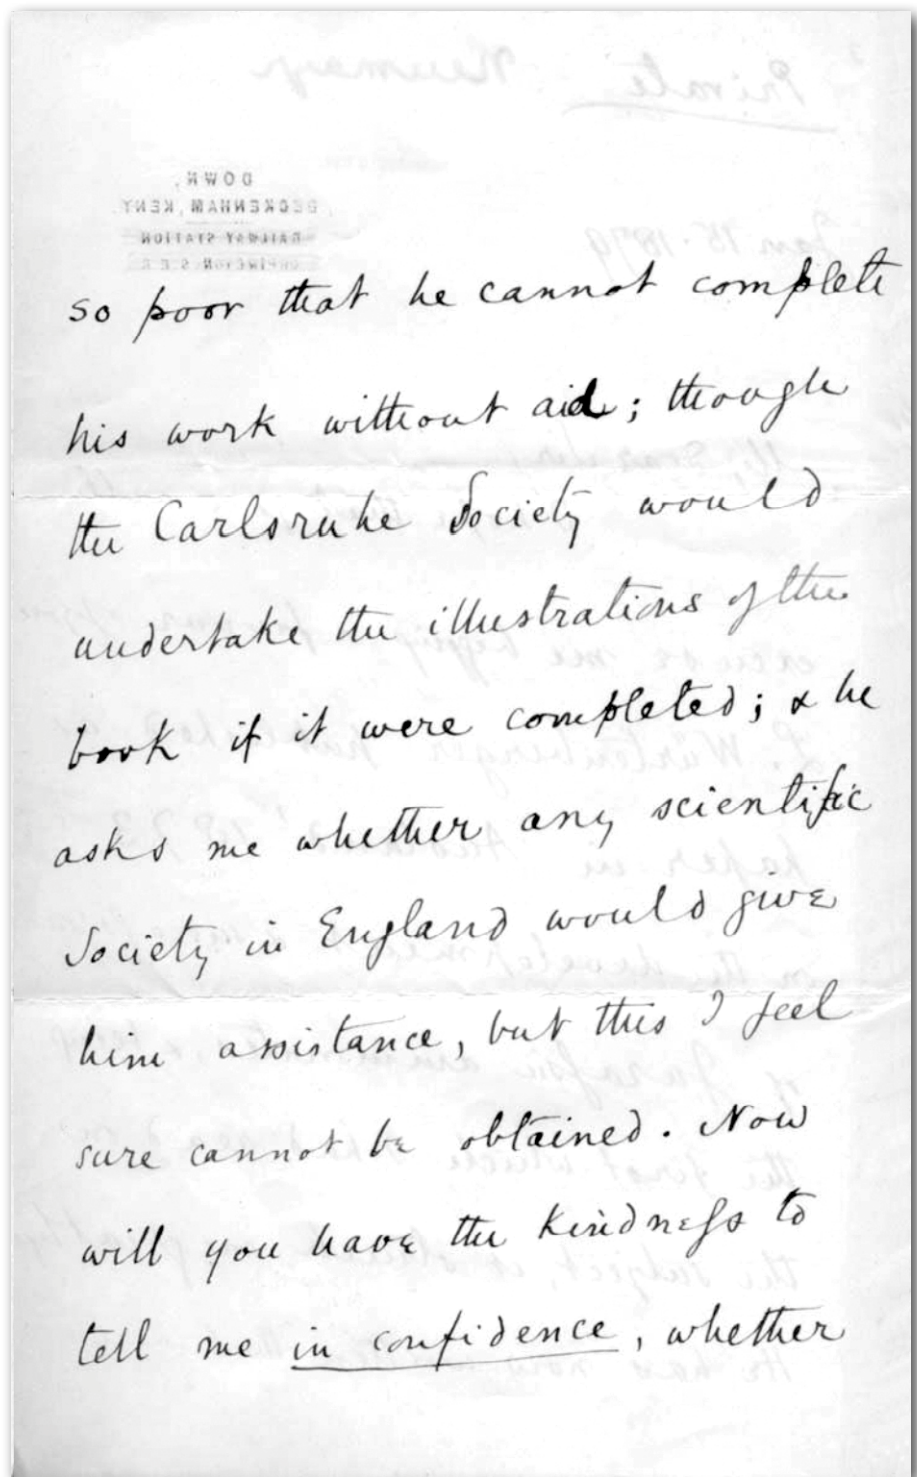 so poor that he cannot complete
his work without aid; though
the Carlsruhe Society would
undertake the illustrations of the
book if it were completed; & he
asks me whether any scientific
Society in England would give
him assistance, but this I feel
sure cannot be obtained. Now
will you have the kindness to
tell me in confidence, whether